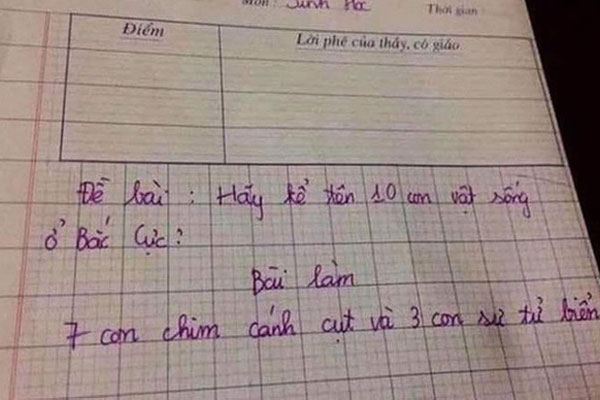 Môn : Sinh Học Thời gian
Điểm Lời phê của thầy, cô giáo
Đề bài : Hãy kể tên 10 con vật sống
ở Bắc Cực?
Bài làm
7 con chim cánh cụt và 3 con sư tử biển